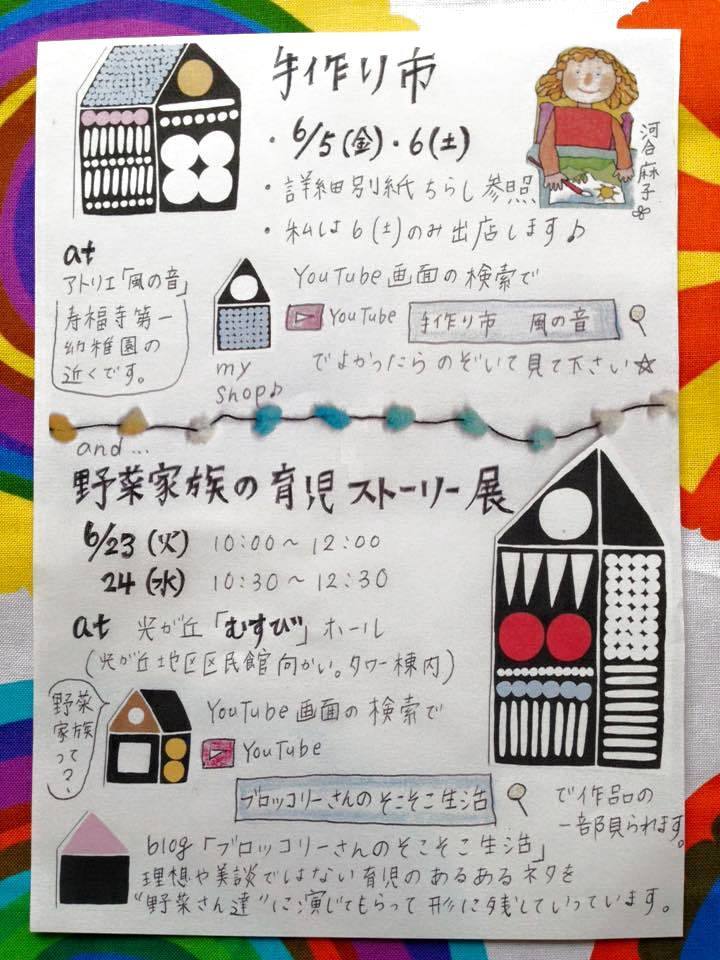 手作り市
・6/5(金)・6(土)
・詳細別紙ちらし参照
・私は6(土)のみ出店します♪
河合麻子
at
アトリエ「風の音」
寿福寺第一
幼稚園の
近くです。
my
shop♪
YouTube画面の検索で
YouTube 手作り市 風の音
でよかったらのぞいて見て下さい☆
and...
野菜家族の育児ストーリー展
6/23(火) 10:00〜12:00
24(水) 10:30〜12:30
at 光が丘「むすび」ホール
(光が丘地区区民館向かい。タワー棟内)
野菜
家族
って?
YouTube画面の検索で
YouTube
ブロッコリーさんのそこそこ生活
で作品の
一部見られます。
blog「ブロッコリーさんのそこそこ生活」
理想や美談ではない育児のあるあるネタを
"野菜さん達"に演じてもらって形に残していっています。